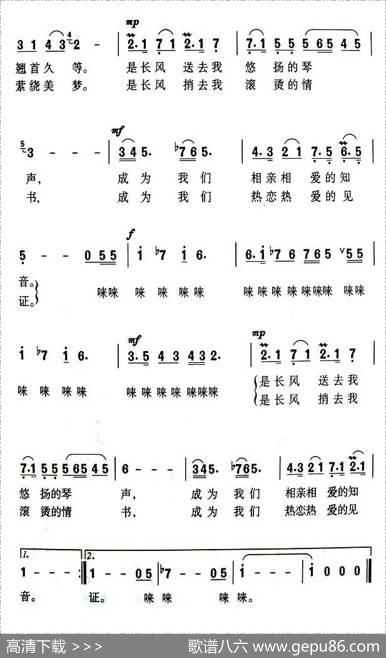 mp
3 1 4 3 2 - - 2. 1 7 1 2. 1 7 7. 1 5 5 5 6 5 4 5
翘首久 等。 是长风 送去我 悠 扬的琴
萦绕美 梦。 是长风 捎去我 滚 烫的情
mf
3 - - - 3 4 5. ♭7 6 5. 4. 3 2 1 7. 1 5 6. 5
声, 成为 我们 相亲相 爱的知
书, 成为 我们 热恋热 爱的见
f
5 - - 0 5 5 1 ♭7 1 6. 6. 1 ♭7 6 7 6 5 ∨5 5
音。 唻唻 唻 唻 唻 唻 唻唻 唻唻唻唻唻 唻唻
证。
mf mp
1 ♭7 1 6. 3. 5 4 3 4 3 2. 2. 1 7 1 2. 1 7
唻 唻 唻 唻 唻唻唻唻唻唻唻 是长风 送去我
是长风 捎去我
7. 1 5 5 5 6 5 4 5 6 - - - 3 4 5. ♭7 6 5. 4. 3 2 1 7. 1 2. 1
悠 扬的琴 声, 成为 我们 相亲相 爱的知
滚 烫的情 书, 成为 我们 热恋热 爱的见
1. 2.
1 - - - :‖ 1 - - 0 5 ♭7 - - 0 5 1 - - - 1 0 0 0
音。 证。 唻 唻 唻 唻。
高清下载 >>> 歌谱八六 www.gepu86.com